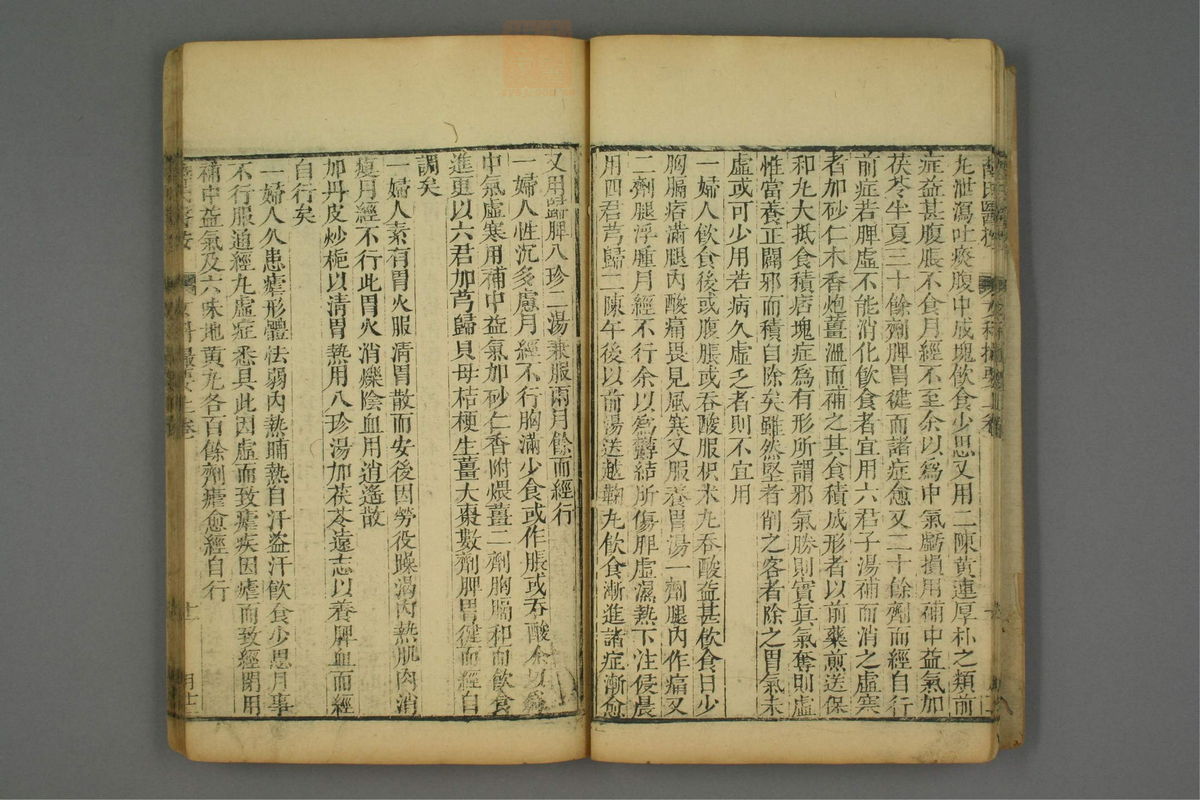 丸泄瀉吐痰腹中成塊飲食少思又用二陳黃連厚朴之類前
症益甚腹脹不食月經不至余以爲中氣虧損用補中益氣加
茯苓半夏三十餘劑脾胃健而諸症愈又二十餘劑而經自行
前症若脾虛不能消化飲食者宜用六君子湯補而消之虛寒
者加砂仁木香炮薑溫而補之其食積成形者以前藥煎送保
和丸大抵食積痞塊症爲有形所謂邪氣勝則實眞氣奪則虛
惟當養正闢邪而積自除矣雖然堅者削之客者除之胃氣未
虛或可少用若病久虛乏者則不宜用
一婦人飲食後或腹脹或吞酸服枳朮丸吞酸益甚飲食日少
胸膈痞滿腿內酸痛畏見風寒又服養胃湯一劑腿內作痛又
二劑腿浮腫月經不行余以爲鬱結所傷脾虛濕熱下注侵晨
用四君芎歸二陳午後以前湯送越鞠丸飲食漸進諸症漸愈
又用歸脾八珍二湯兼服兩月餘而經行
一婦人性沉多慮月經不行胸滿少食或作脹或吞酸余以爲
中氣虛寒用補中益氣加砂仁香附煨薑二劑胸膈和而飲食
進更以六君加芎歸貝母桔梗生薑大棗數劑脾胃健而經自
調矣
一婦人素有胃火服清胃散而安後因勞役躁渴內熱肌肉消
瘦月經不行此胃火消爍陰血用逍遙散
加丹皮炒梔以清胃熱用八珍湯加茯苓遠志以養脾血而經
自行矣
一婦人久患瘧形體怯弱內熱晡熱自汗盜汗飲食少思月事
不行服通經丸虛症悉具此因虛而致瘧疾因瘧而致經閉用
補中益氣及六味地黃丸各百餘劑瘧愈經自行